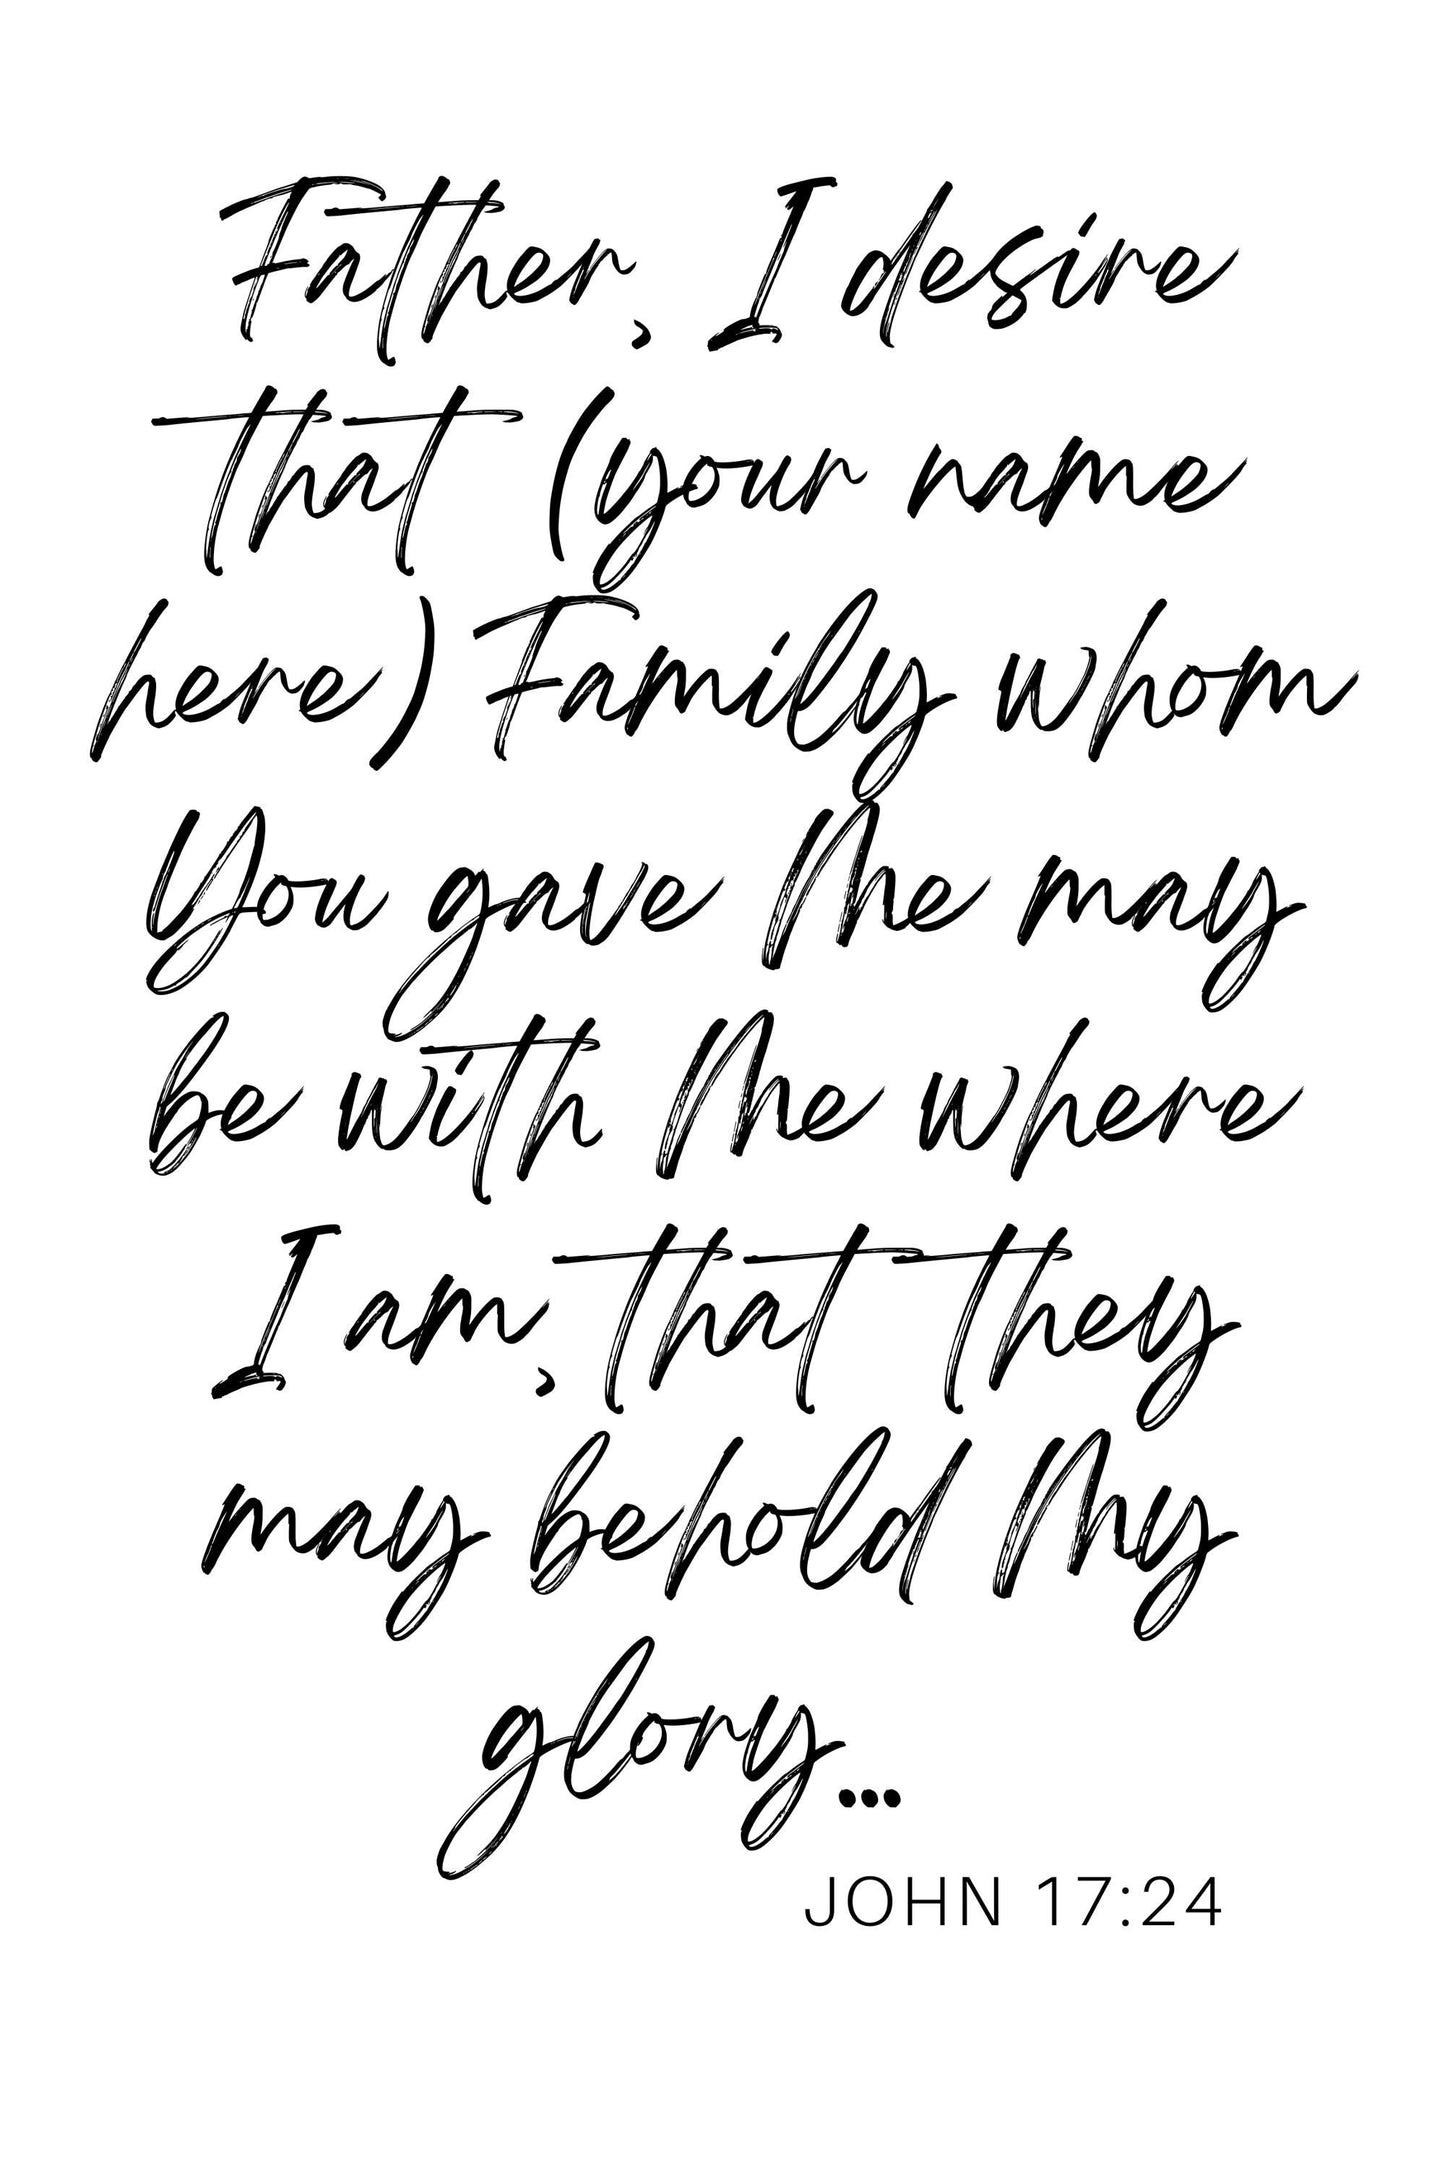 Father, I desire
that (your name
here) Family whom
You gave Me may
be with Me where
I am, that they
may behold My
glory...
JOHN 17:24